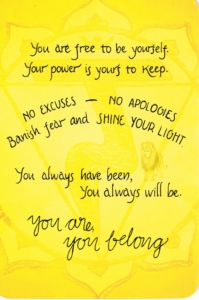 You are free to be yourself.
Your power is yours to keep.
NO EXCUSES — NO APOLOGIES
Banish fear and SHINE YOUR LIGHT.
You always have been,
You always will be.
you are,
you belong